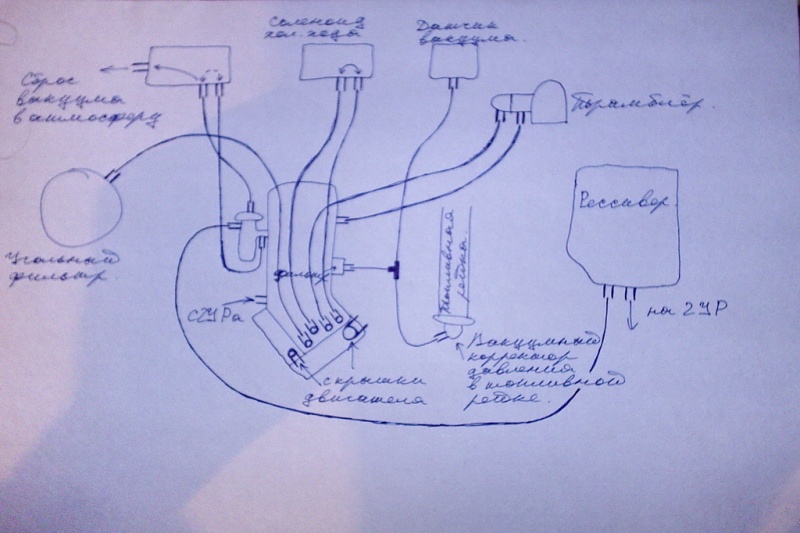 Соленоид
хол. хода
Датчик
вакуума.
Сброс
вакуума
в атмосферу
Трамблёр.
Рессивер.
Угольный
фильтр.
Топливная
рейка.
фильтр
с ГУРа
на ГУР
с крышки
двигателя
Вакуумный
корректор
давления
в топливной
рейке.